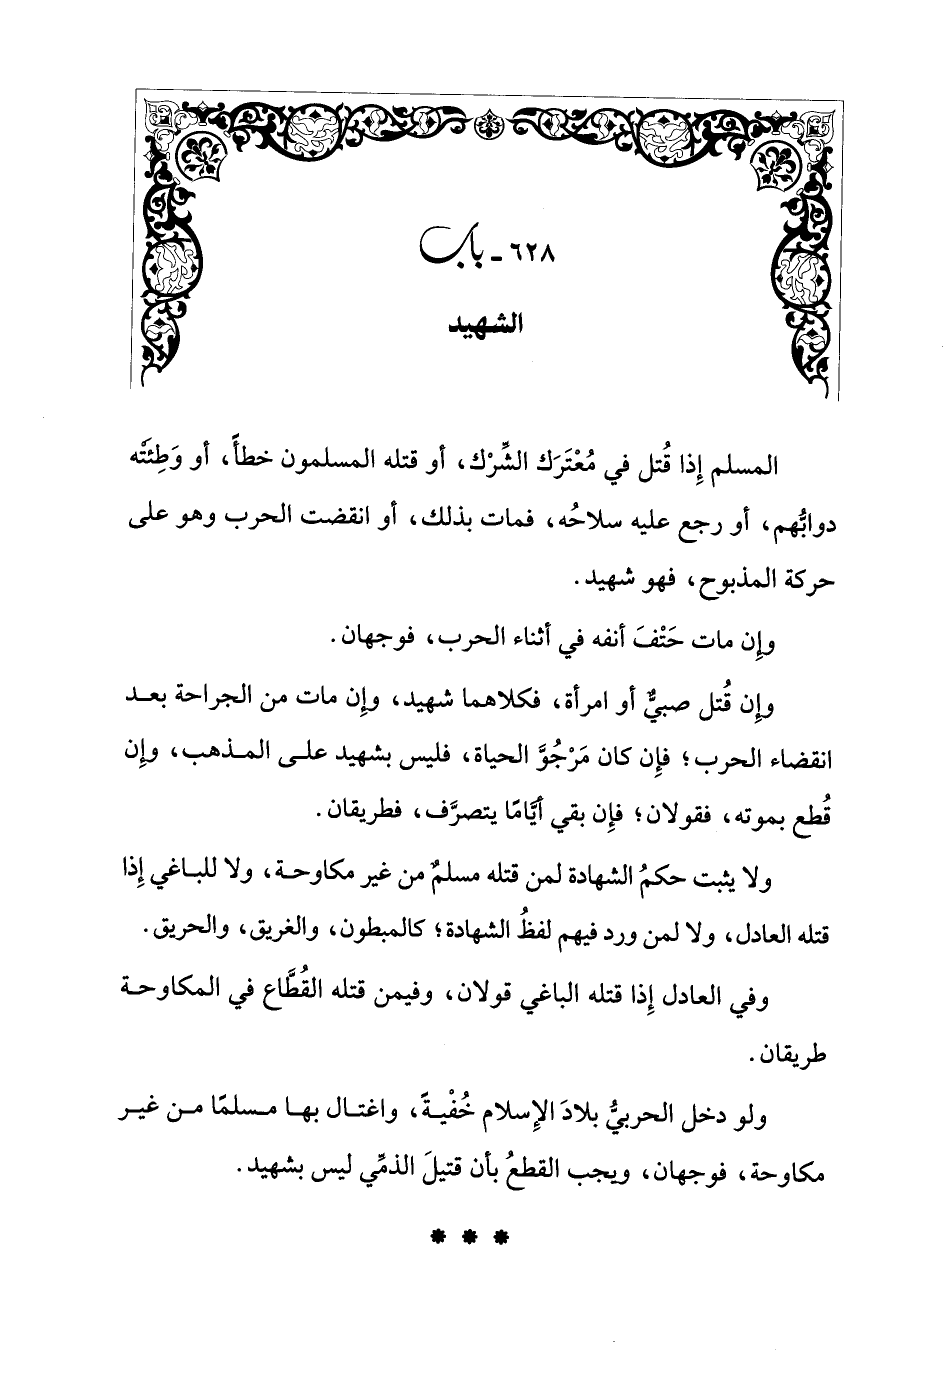 ٦٢٨ - باب
الشهيد
المسلم إِذا قُتل في مُعْتَرَك الشِّرْك، أو قتله المسلمون خطأً، أو وَطِئَتْه
دوابُّهم، أو رجع عليه سلاحُه، فمات بذلك، أو انقضت الحرب وهو على
حركة المذبوح، فهو شهيد.
وإِن مات حَتْفَ أنفه في أثناء الحرب، فوجهان.
وإِن قُتل صبيٌّ أو امرأة، فكلاهما شهيد، وإِن مات من الجراحة بعد
انقضاء الحرب؛ فإِن كان مَرْجُوَّ الحياة، فليس بشهيد على المذهب، وإِن
قُطع بموته، فقولان؛ فإِن بقي أيَّامًا يتصرَّف، فطريقان.
ولا يثبت حكمُ الشهادة لمن قتله مسلمٌ من غير مكاوحة، ولا للباغي إِذا
قتله العادل، ولا لمن ورد فيهم لفظُ الشهادة؛ كالمبطون، والغريق، والحريق.
وفي العادل إِذا قتله الباغي قولان، وفيمن قتله القُطَّاع في المكاوحة
طريقان.
ولو دخل الحربيُّ بلادَ الإِسلام خُفْيةً، واغتال بها مسلمًا من غير
مكاوحة، فوجهان، ويجب القطعُ بأن قتيلَ الذمِّي ليس بشهيد.
* * *